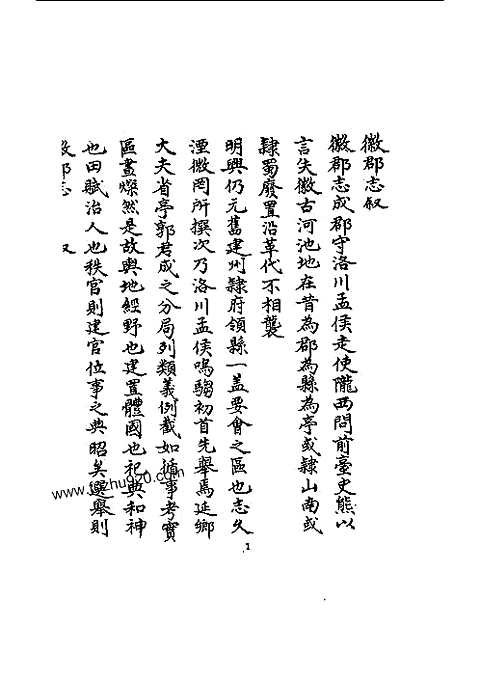 徽郡志叙
徽郡志成郡守洛川孟侯走使隴西問前臺史熊以
言矢徽古河池地在昔為郡為縣為亭或隸山南或
隸蜀廢置沿革代不相襲
明興仍元舊建州隸府領縣一蓋要會之區也志久
湮微罔所撰次乃洛川孟侯鳴騶初首先舉焉延鄉
大夫省亭郭君成之分局列類義例截如循事考實
區畫燦然是故輿地經野也建置體國也祀典和神
也田賦治人也秩官則建官位事之典昭矣選舉則
徽郡志 叙
1
www.
zhu920.com